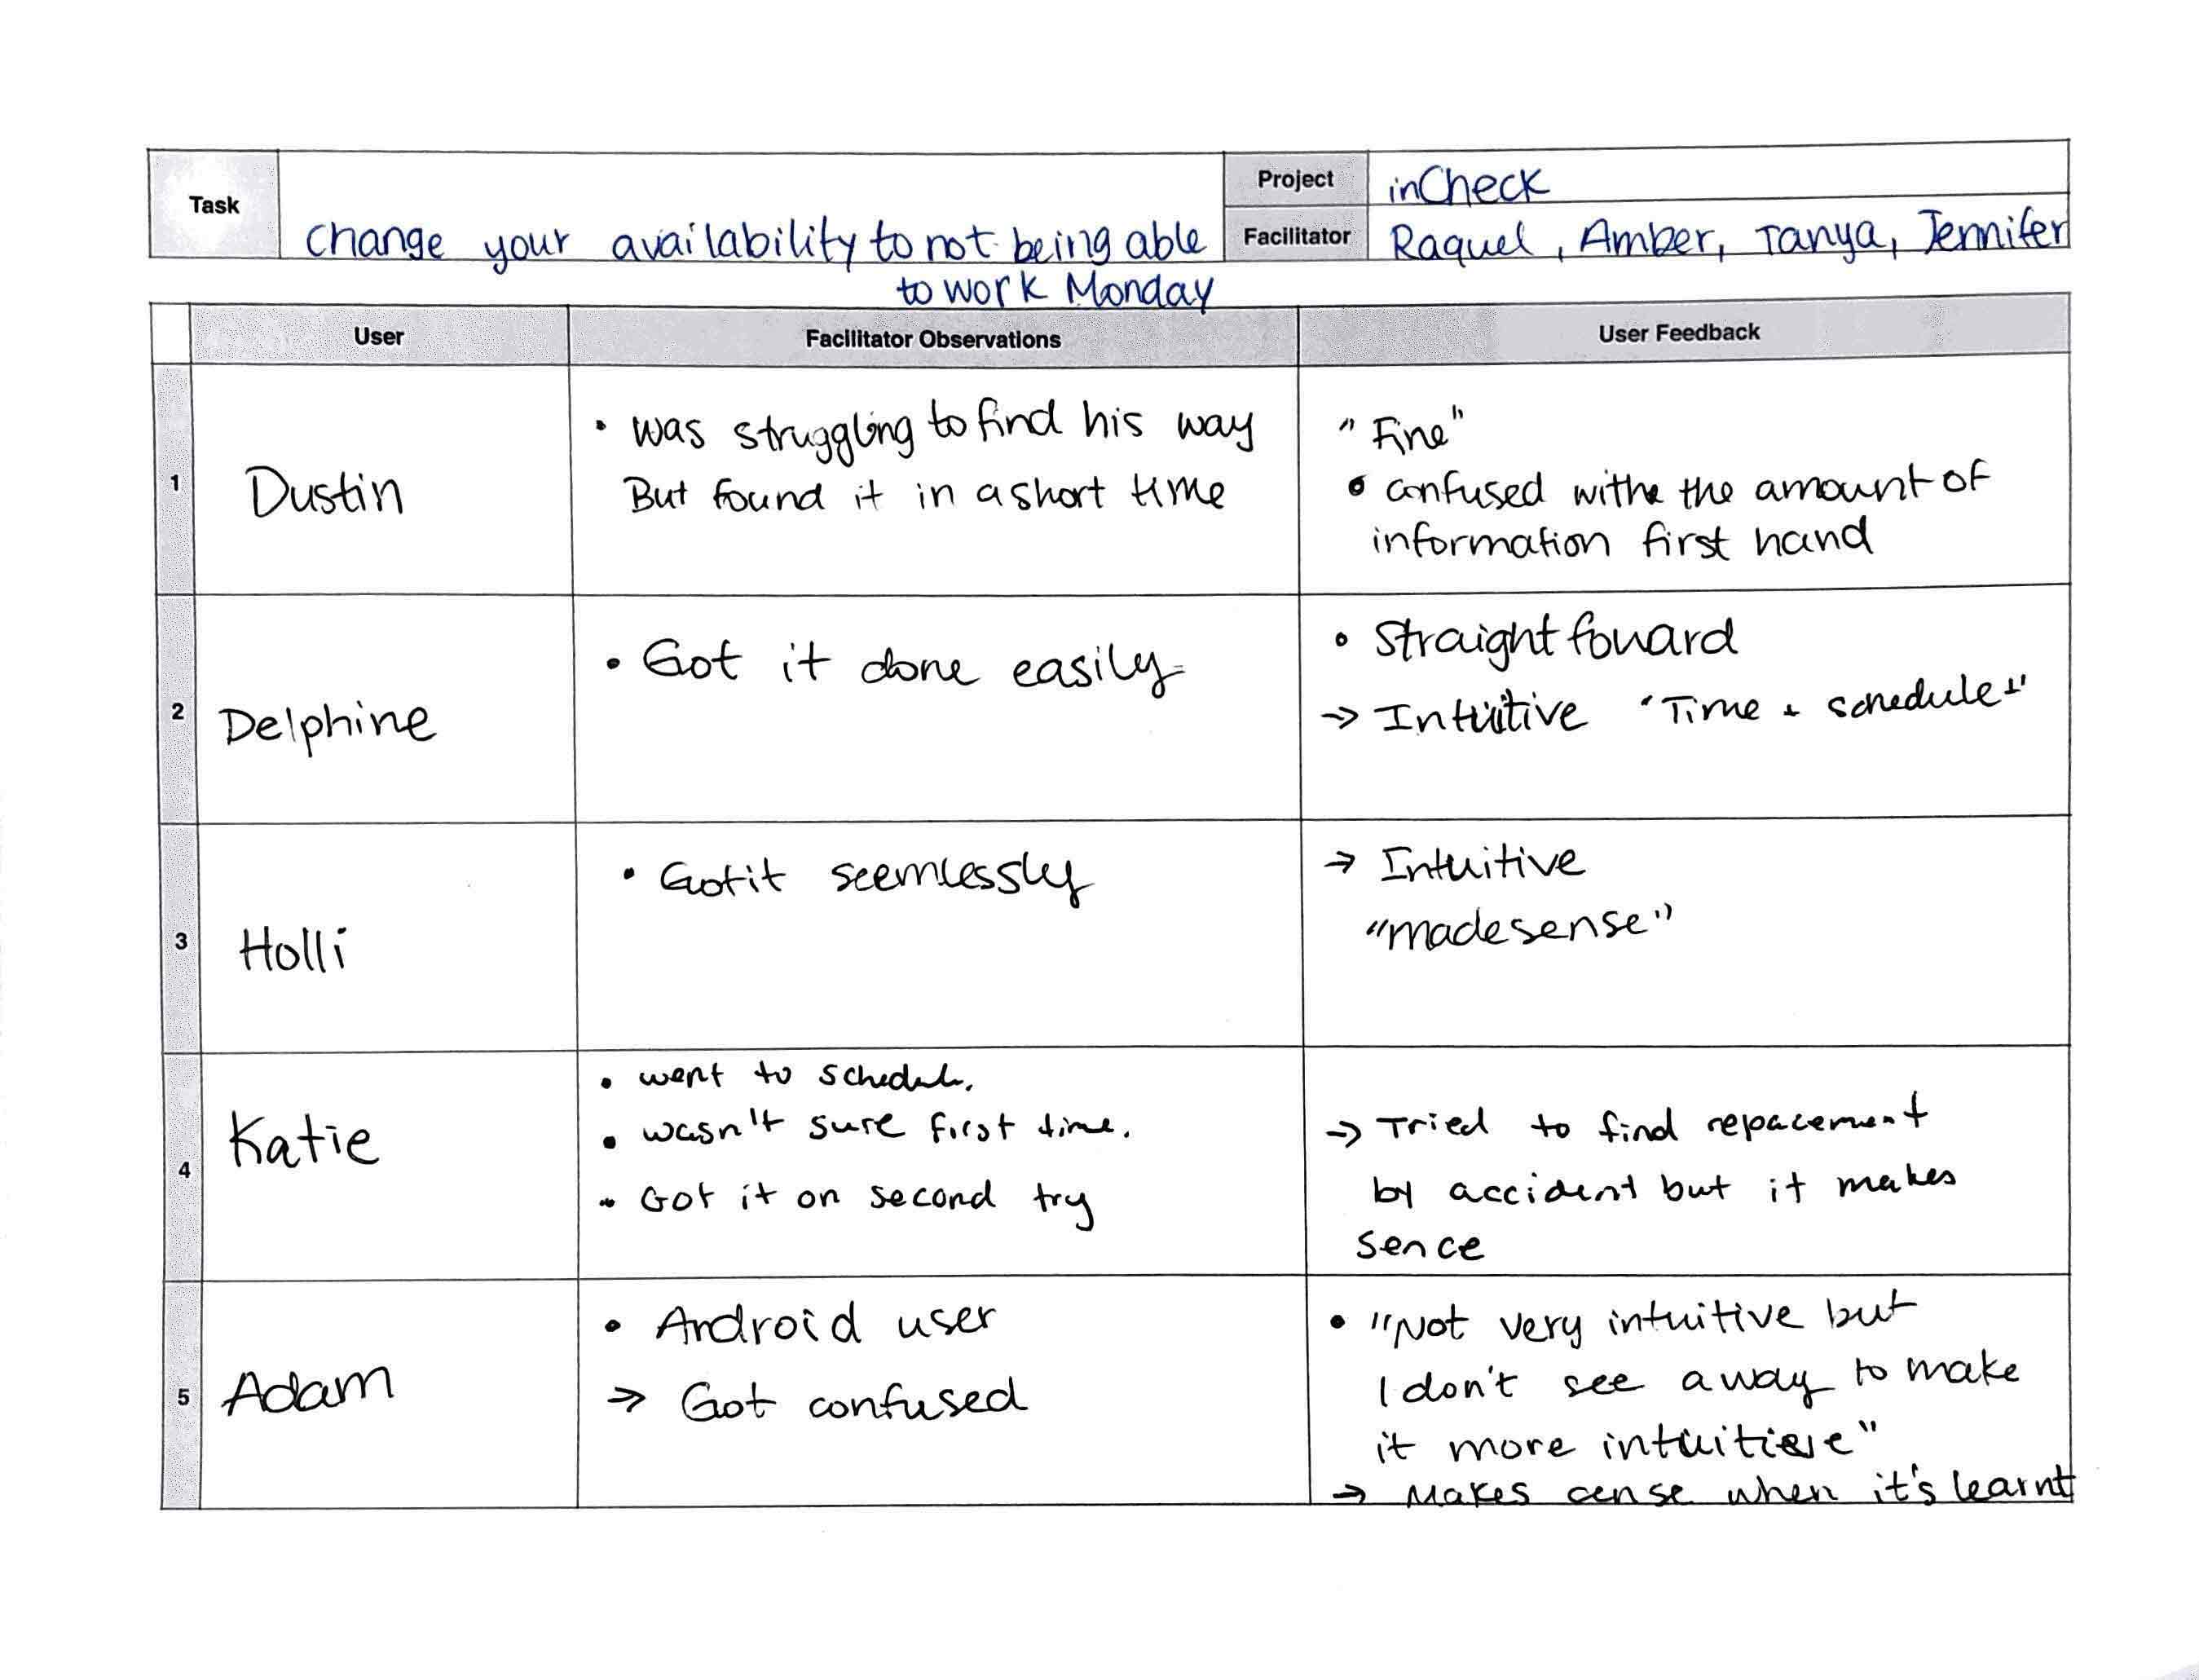 Task
change your availability to not being able
to work Monday
Project
inCheck
Facilitator
Raquel, Amber, Tanya, Jennifer
User
Facilitator Observations
User Feedback
1
Dustin
• was struggling to find his way
But found it in a short time
"Fine"
• confused withe the amount of
information first hand
2
Delphine
• Got it done easily
• Straight foward
→ Intuitive "Time + schedule"
3
Holli
• Got it seemlessly
→ Intuitive
"made sense"
4
Katie
• went to schedule.
• wasn't sure first time.
• Got it on second try
→ Tried to find repacement
by accident but it makes
sence
5
Adam
• Android user
→ Got confused
• "Not very intuitive but
I don't see a way to make
it more intuitive"
→ Makes cense when it's learnt